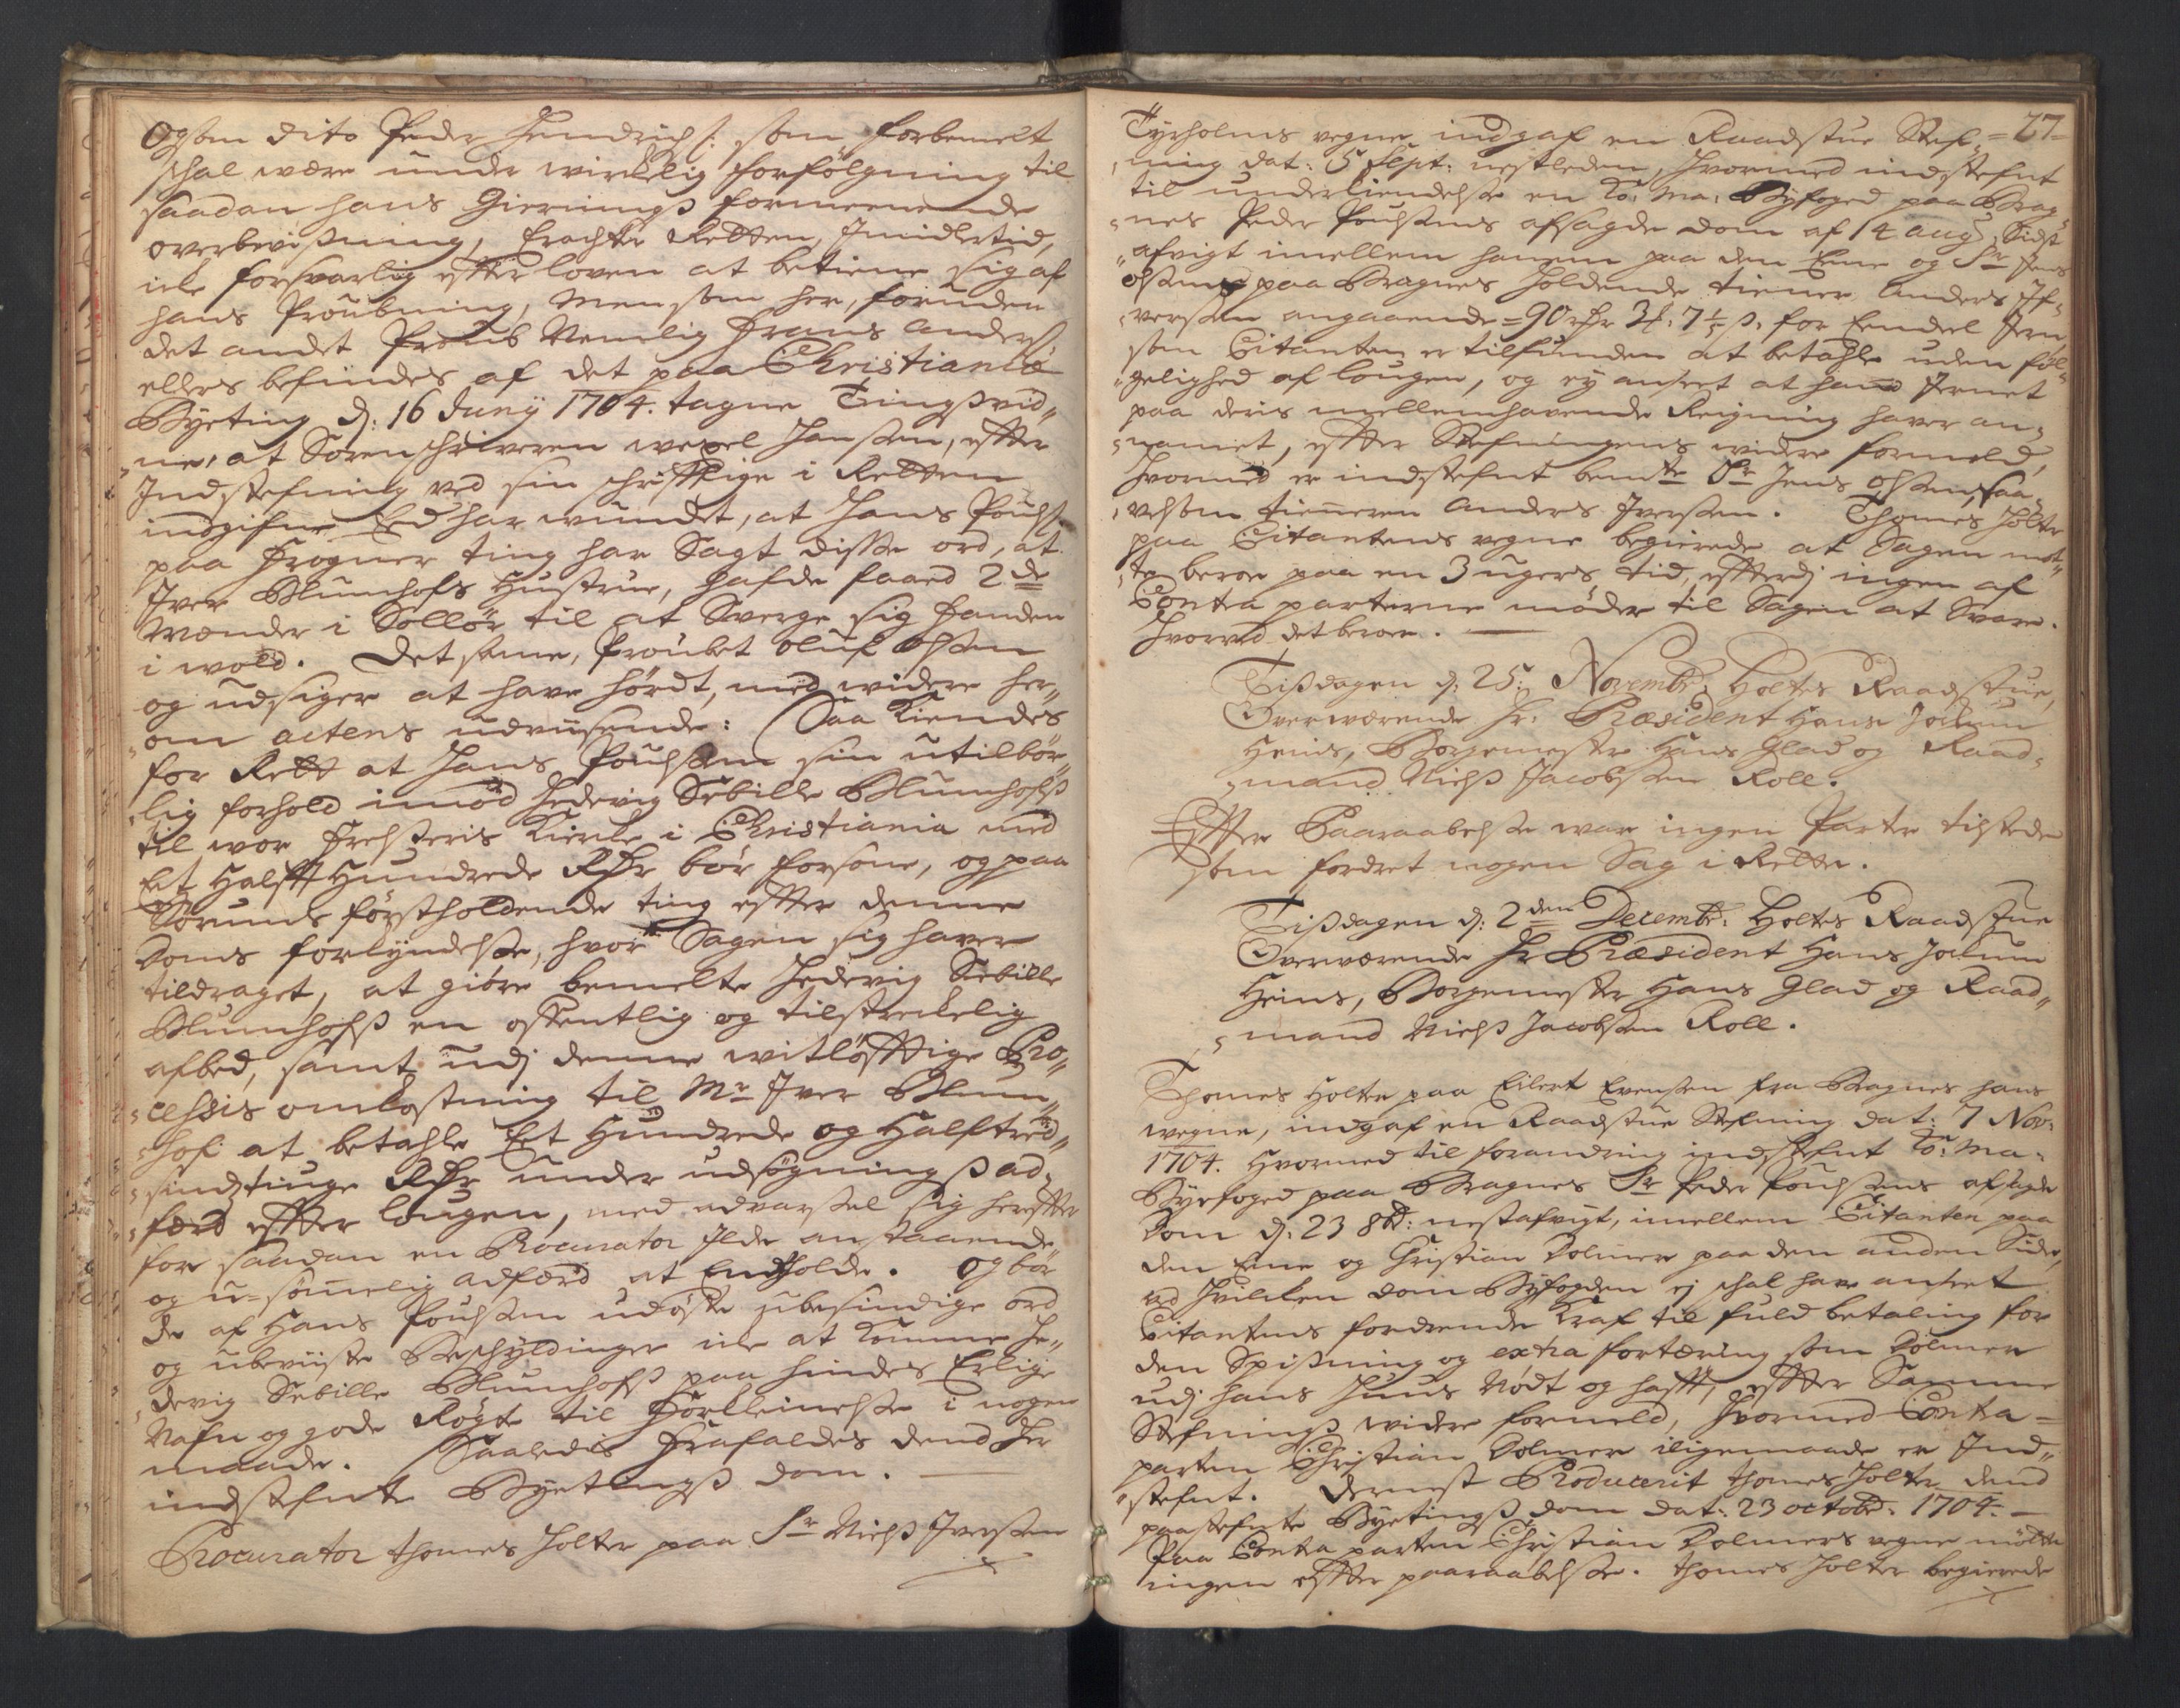 Ogsom dito Peder Hendrichs: som forbemelt
schal wære under wirkelig forfölgning til
saadan hans Giernings formeenende
overbeviisning, Erachter Retten, Imidlertid,
icke forsvarlig effter loven at betiene sig af
hans Proubning, Men som her, foruden
det andet Proub Nemelig Frans Anders:
ellers befindes af det paa Christiania
Byeting d: 16 Juny 1704. tagne Tingsvid„
„ne, at Sorenschriveren wexel Hansen, effter
Indstefning ved sin schrifftlige i Retten
indgifne Eed har wundet, at Hans Pouels:
paa Frogner ting har Sagt disse ord, at
Iver Blumhofs Hustrue, hafde faaed 2de
Mænder i Sollör til at Sverge sig Fanden
i wold. Det samme, Proubet Oluf Olsen
og udsiger at have hördt, med widere her„
„om actens udviisende: Saa Kiendes
for Rett at Hans Pouelsen sin utilbör„
„lig forhold imod Hedevig Sebille Blumhofs
til wor Frelseris Kircke i Christiania med
Et Halfft Hundrede Rdr bör forsone, og paa
Sörums förstholdende ting effter denne
Doms forkyndelse, hvor Sagen sig haver
tildraget, at giöre bemelte Hedevig Sebille
Blumhofs en offentlig og tilstreckelig
afbed, samt udj denne witlöfftige Pro„
„cessis omkostning til Mr Iver Blum„
„hof at betahle Et Hundrede og Halftred„
„sindstiuge Rdr under udsögnings ad„
„færd effter lougen, med advarsel sig hereffter
for saadan en Procurator ilde anstaaende
og u-sömmelig adfærd at Endholde. Og bör
de af Hans Pouelsen udöste ubesindige ord
og ubeviiste Beschyldinger icke at komme He„
„devig Sebille Blumhofs paa hindes Erlige
Nafn og gode Rögte til Forkleinelse i nogen
maade. Saaledis Frafaldes dend her
indstefnte Byetings dom.
Procurator Thomes Holter paa Sr Niels Iversen
= 27 =
Tyrholms vegne indgaf en Raadstue Stef„
„ning dat: 5 Sept: nestleden, hvormed indstefnt
til underkiendelse en Ko: Ma: Byfoged paa Brag„
„nes Peder Pouelsens afsagde dom af 14 Aug: sidst
„afvigt imellem hanem paa den Eene og Sr Jens
Olsens paa Bragnes holdende tiener Anders If„
„versen angaaende = 90 rdr 3 ß: for Eendeel Jern,
som Citanten er tilfunden at betahle uden föl„
„gelighed af lougen, og ey anseet at hand Jernet
paa deris mellemhavende Reigning haver an„
„nammet, effter Stefningens widere formeld,
hvormed er indstefnt bemte Sr Jens Olsen, saa„
„velsom tienneren Anders Iversen. Thomes Holter
paa Citantens vegne begierede at Sagen mot„
„te beroe paa en 3 ugers tid, effterdj ingen af
Contra parterne möder til Sagen at Svare.
Hvorved det beroer.
Tiisdagen d: 25: Novembr: holtes Raadstue,
Overwærende Hr: Præsident Hans Jockum
Heins, Borgemester Hans Glad og Raad„
„mand Niels Jacobsen Roll.
Effter Paaraabelse war ingen Parter tilstede
som fordret nogen Sag i Rette.
Tiisdagen d: 2den Decembr: holtes Raadstue
Overwærende Hr Præsident Hans Jockum
Heins, Borgemester Hans Glad og Raad„
„mand Niels Jacobsen Roll.
Thomes Holter paa Eilert Evensen fra Bragnes hans
wegne, indgaf en Raadstue Stefning dat: 7 Nov:
1704. Hvormed til forandring indstefnt Ko: Ma:
Byefoged paa Bragnes Sr Peder Pouelsens afsagde
Dom d: 23 8br: nestafvigt, imellem Citanten paa
den Eene og Christian Dolmer paa den anden Side,
ved hvilcken dom Byfogden ej schal have anseet
Citantens fordrende Kraf til fuld betaling for
den Spisning og extra fortæring som Dolmer
udj hans Huus Nödt og hafft, effter Samme
Stefnings widere formeld, hvormed Contra=
parten Christian Dolmer iligemaade er Ind„
„stefnt. Dernest Producerit Thomes Holter dend
paastefnte Byetings dom dat: 23 octobr: 1704. —
Paa Contra parten Christian Dolmers vegne mötte
ingen effter paaraabelse. Thomes Holter begierede